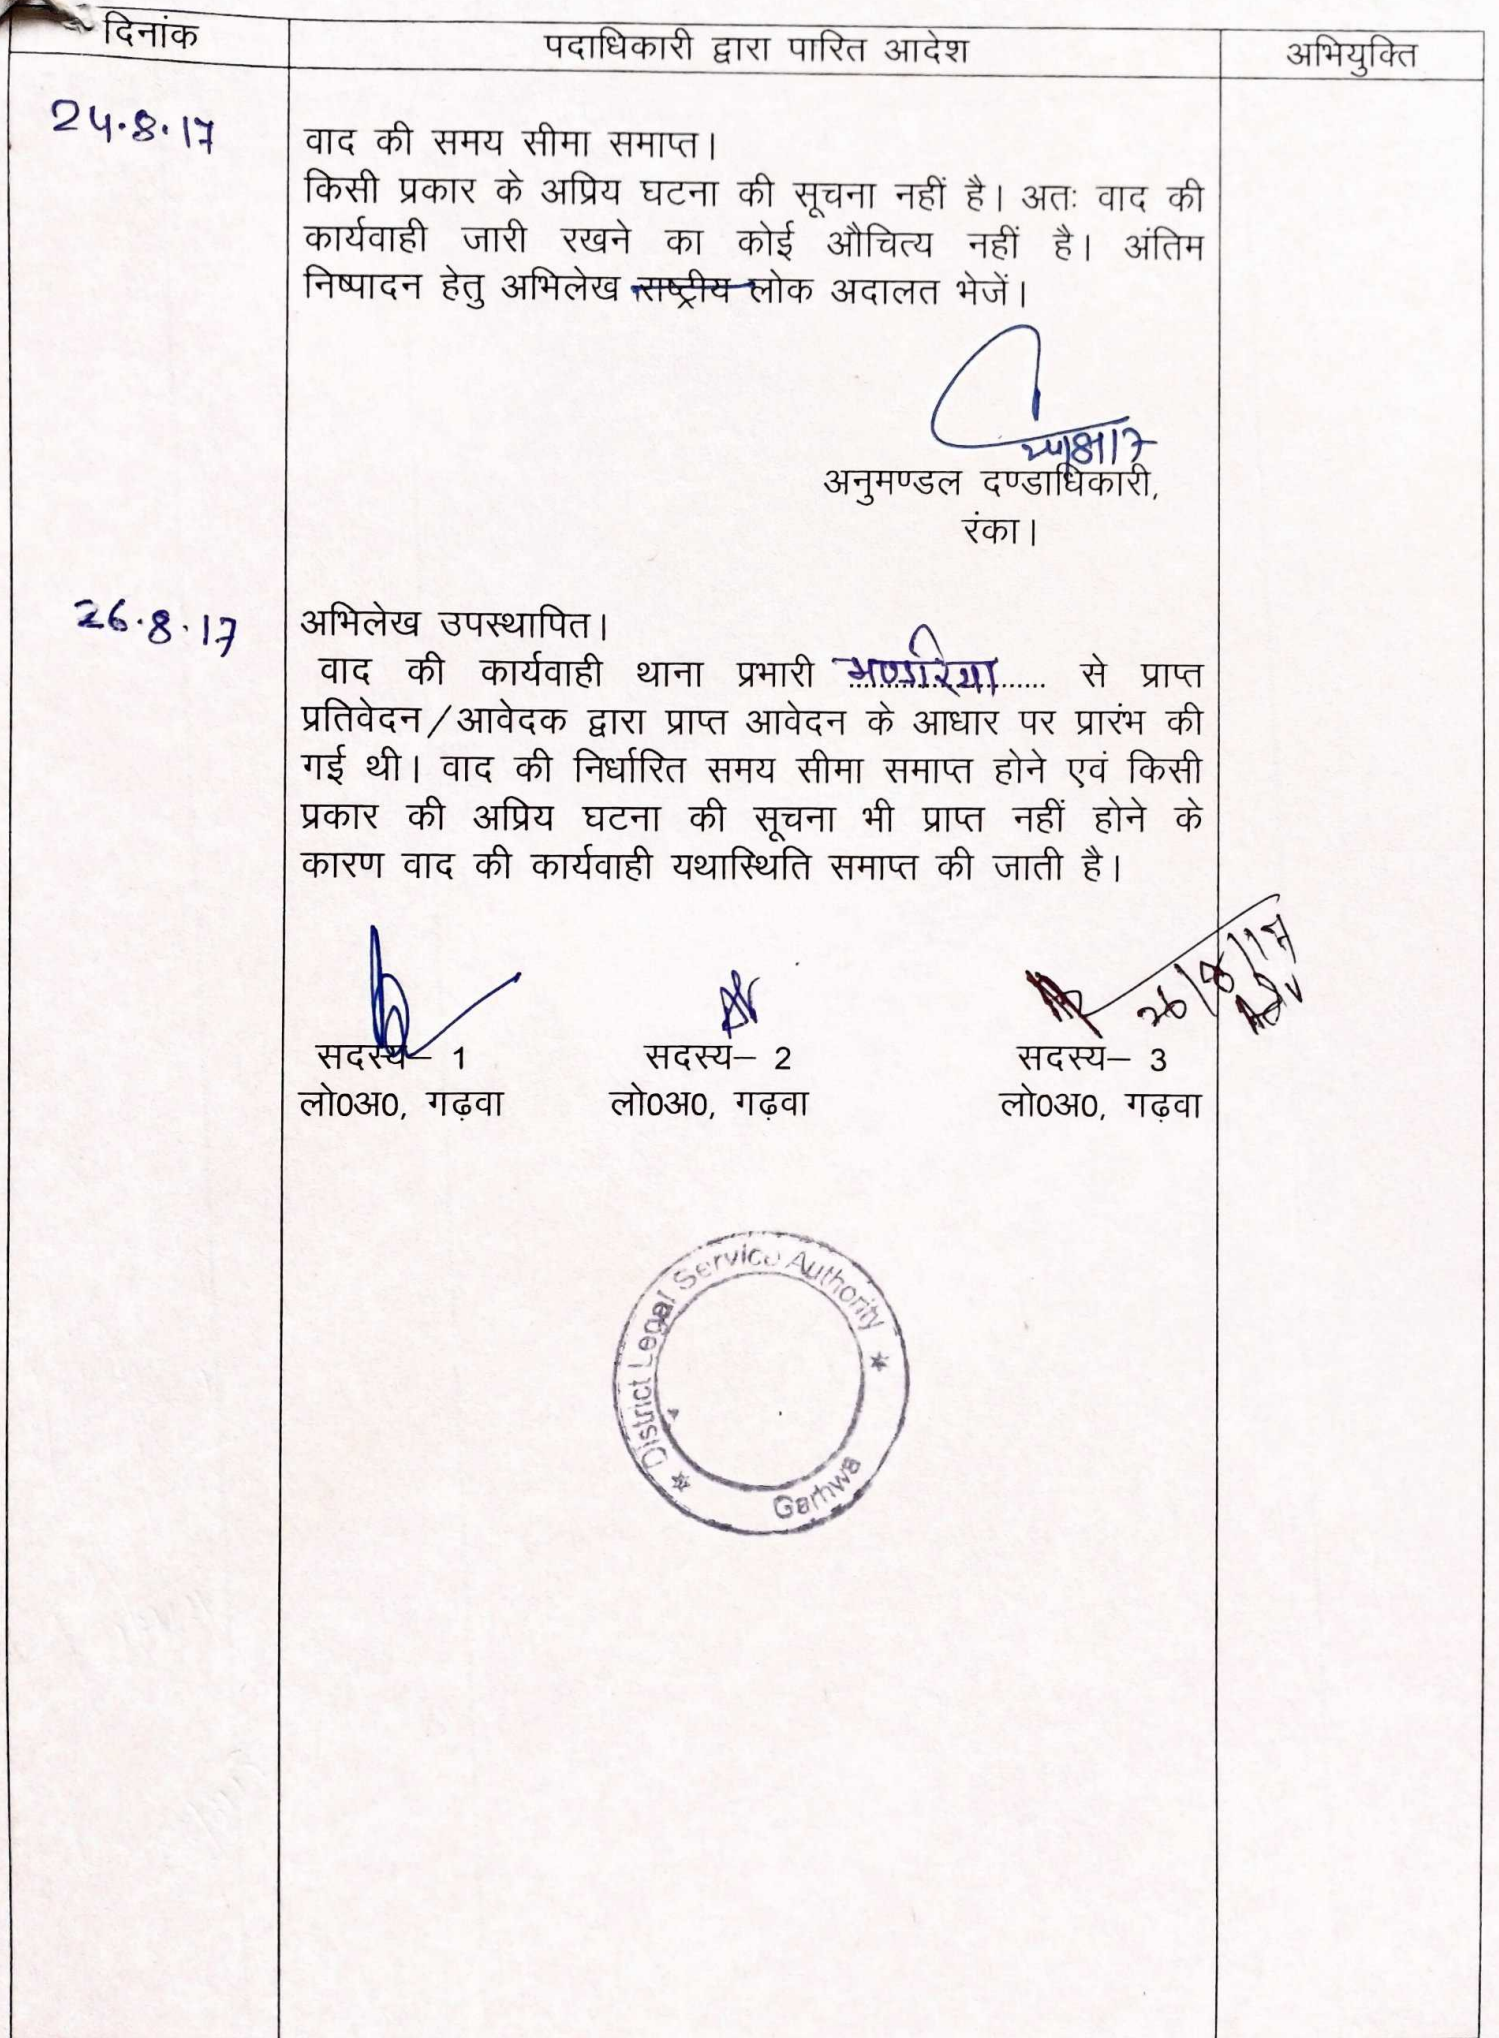 दिनांक पदाधिकारी द्वारा पारित आदेश अभियुक्ति
24.8.17
वाद की समय सीमा समाप्त।
किसी प्रकार के अप्रिय घटना की सूचना नहीं है। अतः वाद की
कार्यवाही जारी रखने का कोई औचित्य नहीं है। अंतिम
निष्पादन हेतु अभिलेख राष्ट्रीय लोक अदालत भेजें।
24/8/17
अनुमण्डल दण्डाधिकारी,
रंका।
26.8.17 अभिलेख उपस्थापित।
वाद की कार्यवाही थाना प्रभारी भण्डरिया से प्राप्त
प्रतिवेदन/आवेदक द्वारा प्राप्त आवेदन के आधार पर प्रारंभ की
गई थी। वाद की निर्धारित समय सीमा समाप्त होने एवं किसी
प्रकार की अप्रिय घटना की सूचना भी प्राप्त नहीं होने के
कारण वाद की कार्यवाही यथास्थिति समाप्त की जाती है।
26/8/17
सदस्य– 1 सदस्य– 2 सदस्य– 3
लो0अ0, गढ़वा लो0अ0, गढ़वा लो0अ0, गढ़वा
District Legal Service Authority
Garhwa